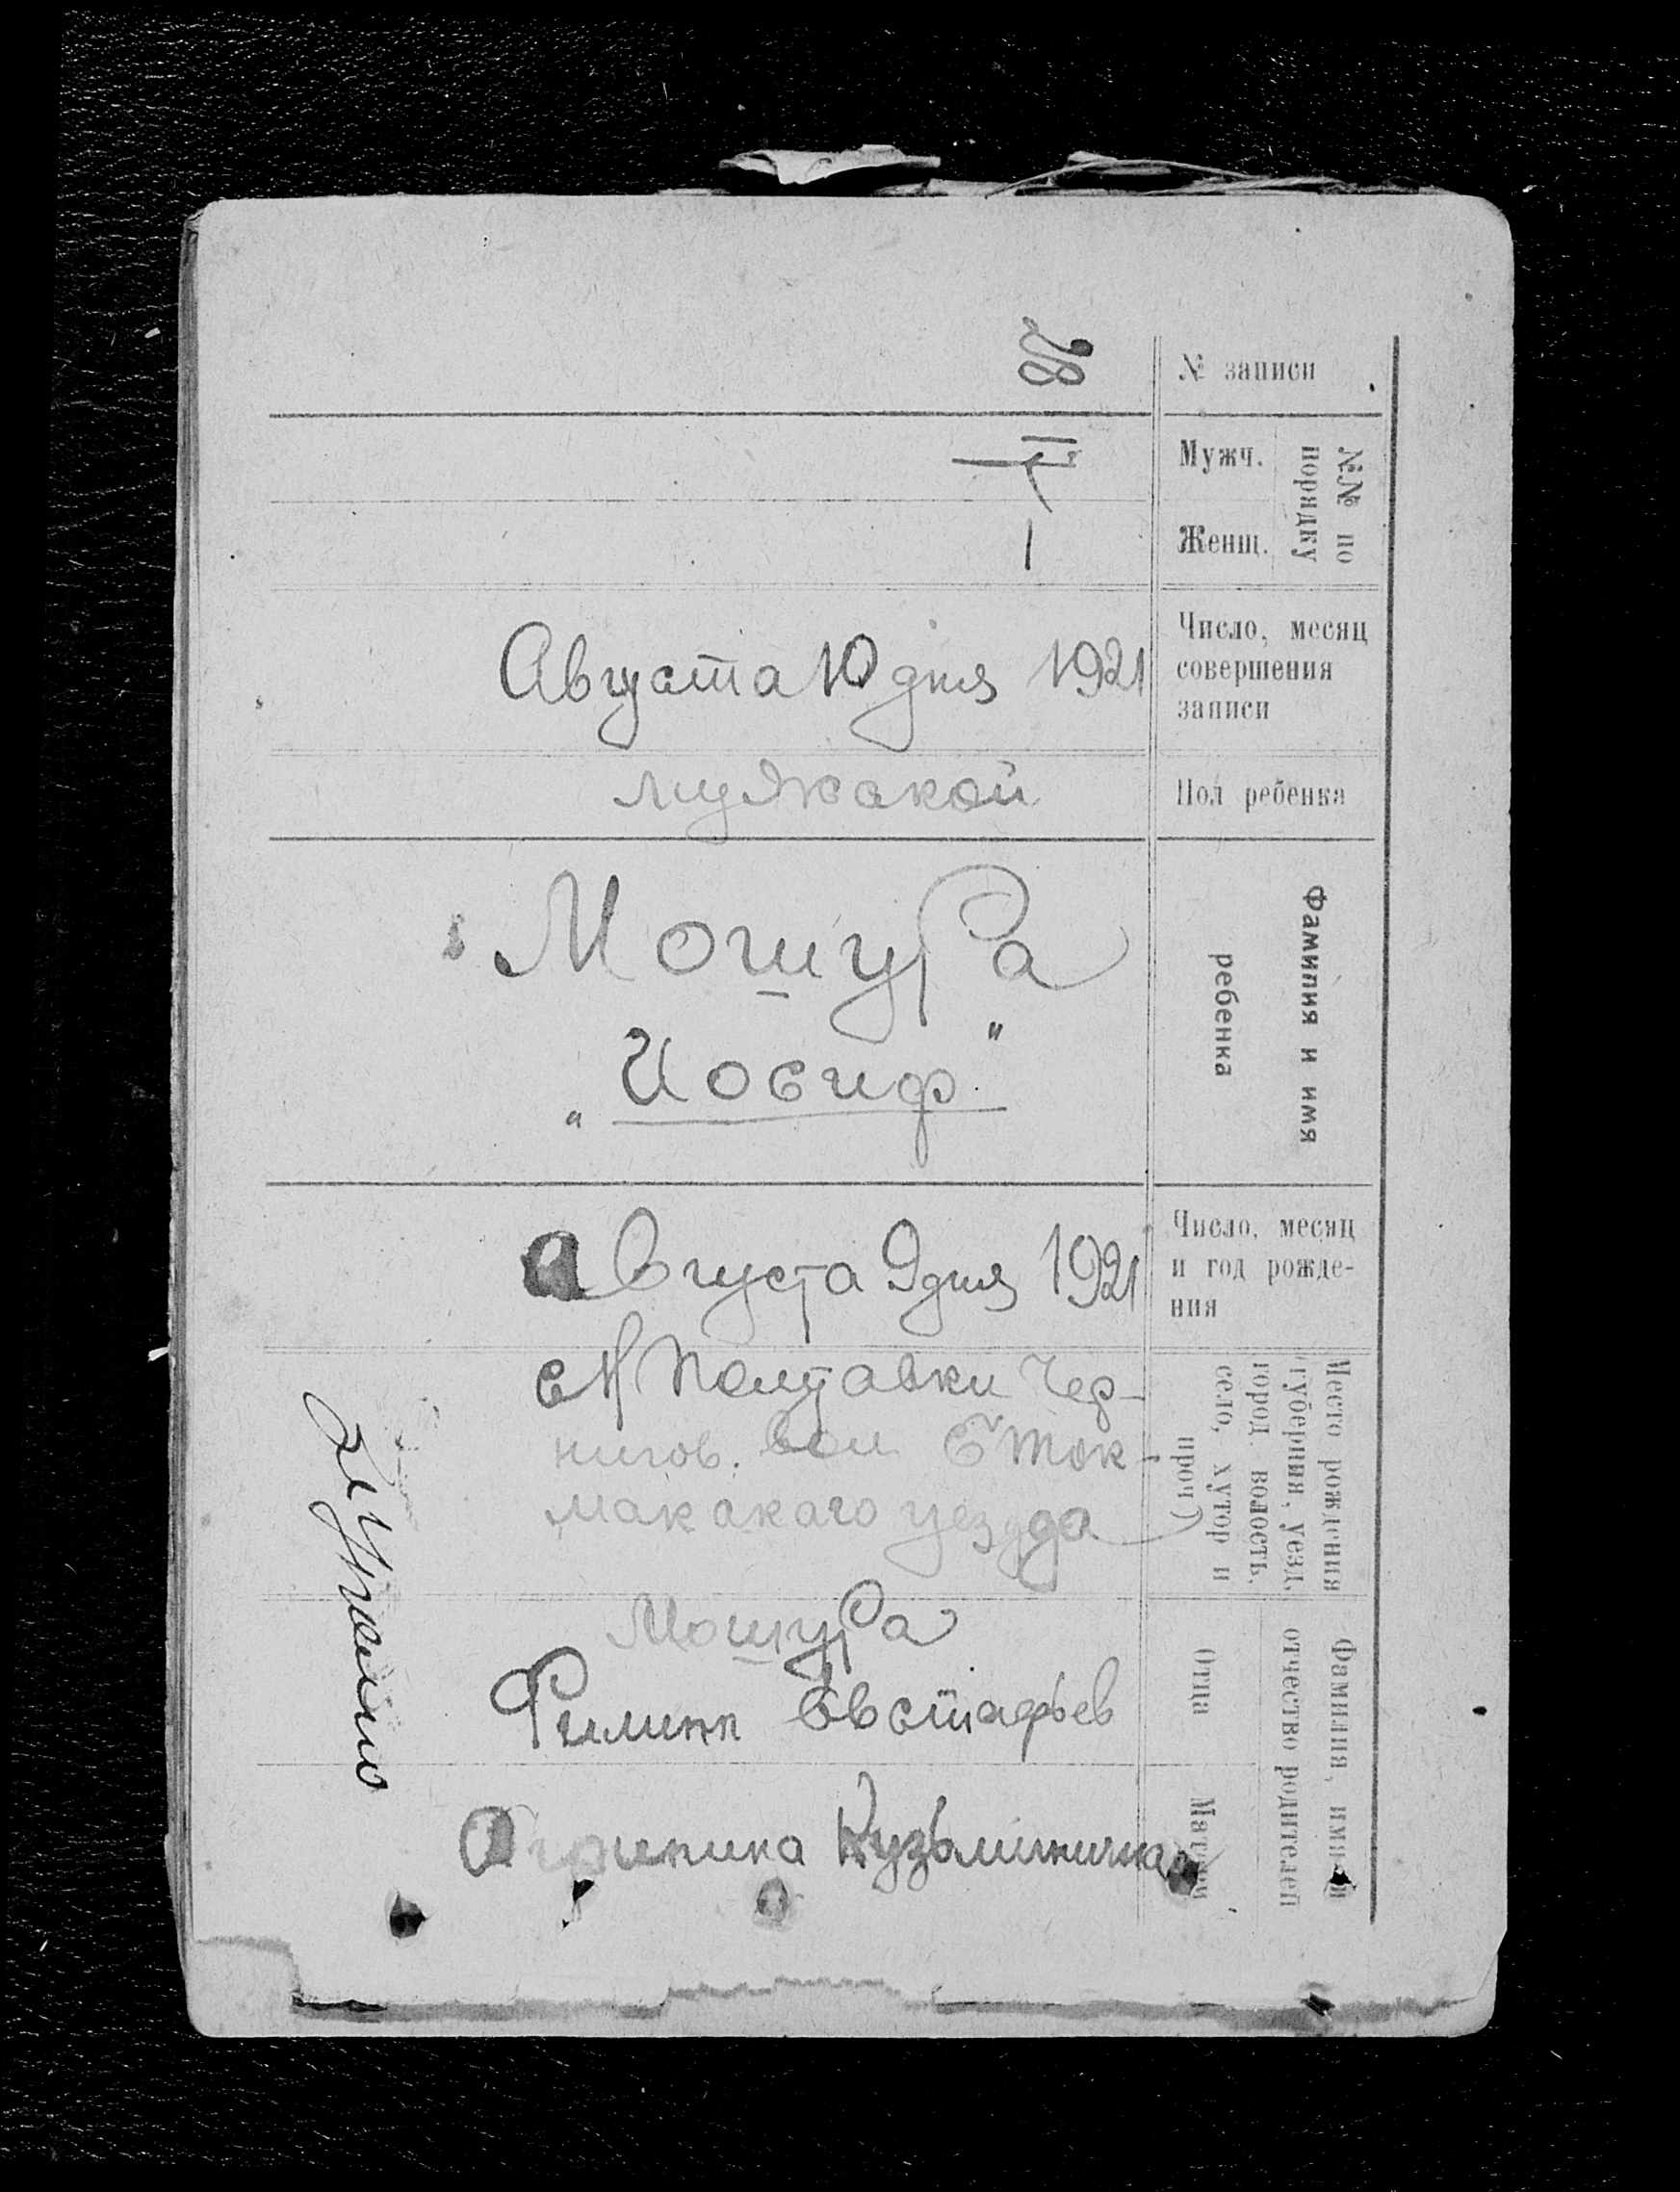 № записи
28
№№ по
порядку
Мужч.
II
Женщ.
Число, месяц
совершения
записи
Августа 10 дня 1921
Пол ребенка
мужской
Фамилия и имя
ребенка
Мошура
„Иосиф"
Число, месяц
и год рожде-
ния
Августа 9 дня 1921
Место рождения
(губерния, уезд,
город, волость,
село, хутор и
проч.)
Полтавки Чер-
нигов. вол Б Ток-
макскаго уезда
Фамилия, имя и
отчество родителей
Отца
Мошура
Филипп Евстафьев
Матери
Кузьминична